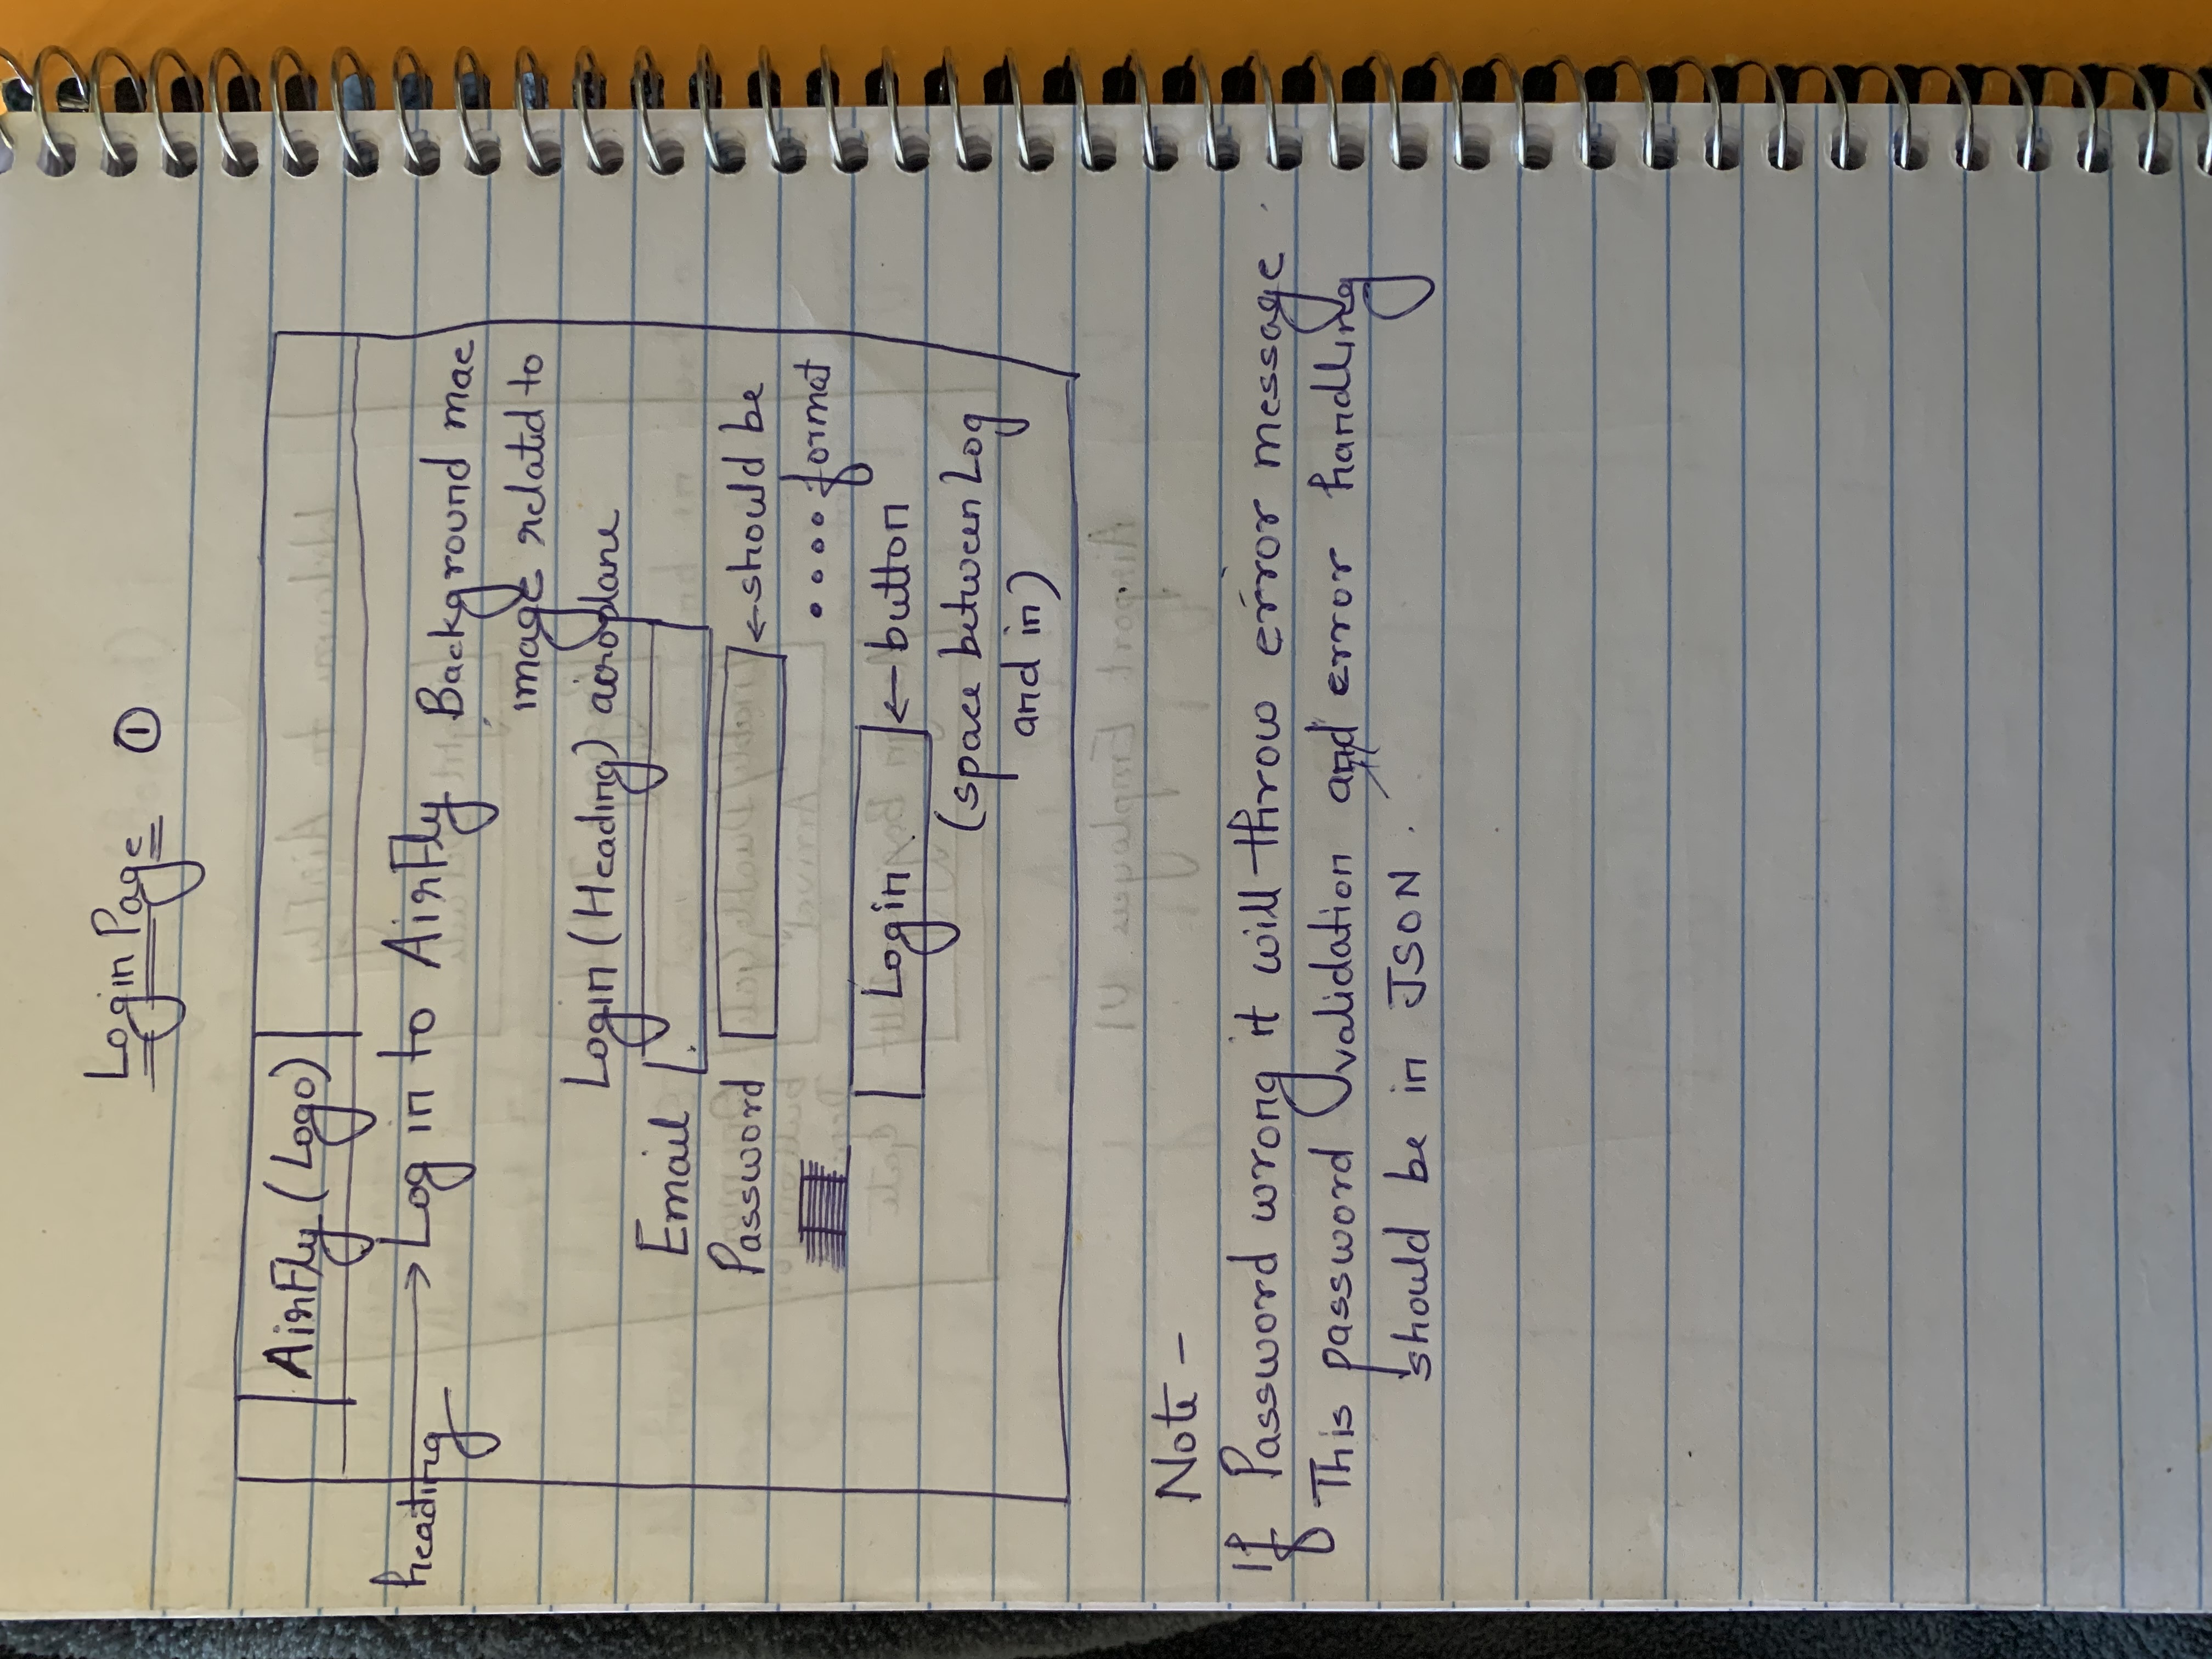 Login Page ①
AirFly (Logo)
heading → Log in to AirFly
Background
image related to
Login (Heading) airoplane
Email
Password ← should be
.... format
Login ← button
(space between Log
and in)
Note -
If Password wrong it will throw error message
This password validation and error handling
should be in JSON.